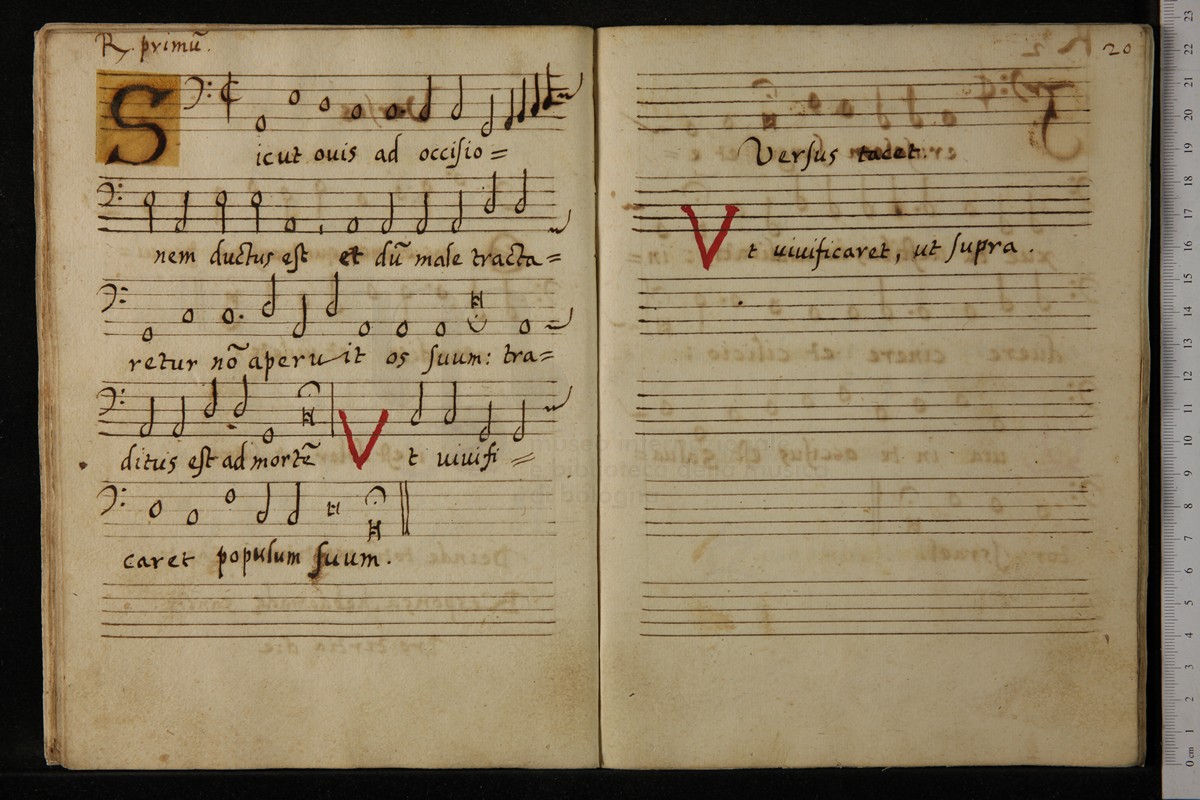 R. primū.
Sicut ouis ad occiſio=
nem ductus eſt et dū male tracta=
retur nō aperuit os ſuum: tra=
ditus eſt ad mortē Vt uiuifi=
caret populum ſuum.
20
Verſus tacet.
Vt uiuificaret, ut ſupra.
museo internazionale
e biblioteca della musica
di bologna
0 cm 1 2 3 4 5 6 7 8 9 10 11 12 13 14 15 16 17 18 19 20 21 22 23